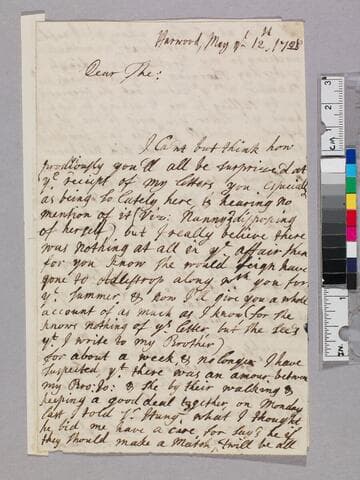 Harwood, May yᵉ 12ᵗʰ, 1728
Dear The:
I Cant but think how
prodiiously you'll all be surprized at
yᵉ receipt of my letters you especially
as being so Lately here, & hearing no
mention of it (viz: Nanny? disposing
of herself) but I really believe there
was nothing at all in yᵉ affair then
for you know she would feign have
gone to Adlestrop along wᵗʰ you for
yᵉ Summer, & now I'd give you a whole
account of as much as I know (for she
knows nothing of yˢ letter, but she sees
yᵗ I write to my Brother)
for about a week & no longer I have
suspected yᵗ there was an amour between
my Bro: Jo: & she by their walking &
keeping a good deal together, on Monday
last I told yᵉ what I thought
he bid me have a care, for says he if
they should make a Match, twill be all
CM
Inch